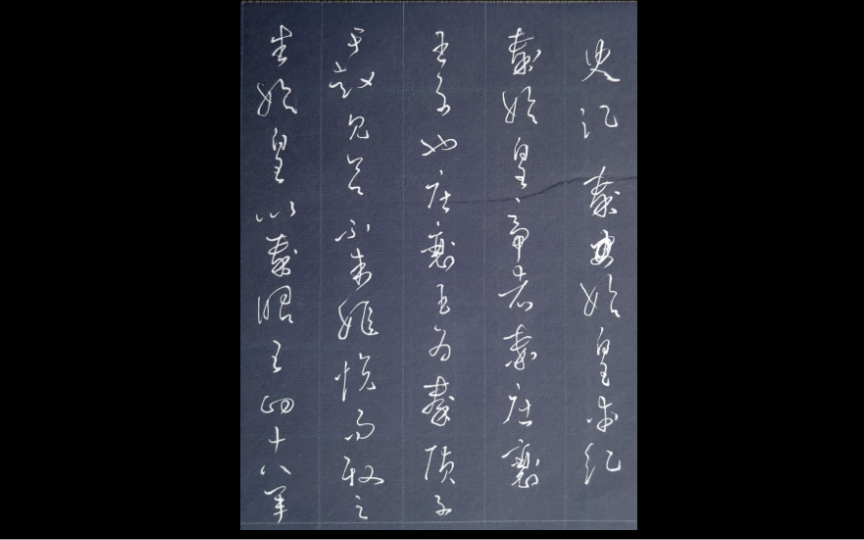 史记 秦始皇本纪
秦始皇帝者秦庄襄
王子也庄襄王为秦质子
于赵见吕不韦姬悦而取之
生始皇以秦昭王四十八年